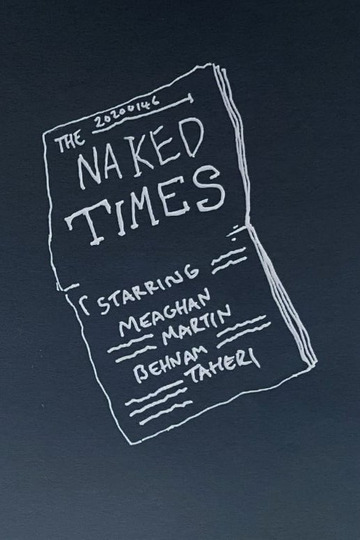 THE 20200146
NAKED
TIMES
STARRING
MEAGHAN
MARTIN
BEHNAM
TAHERI